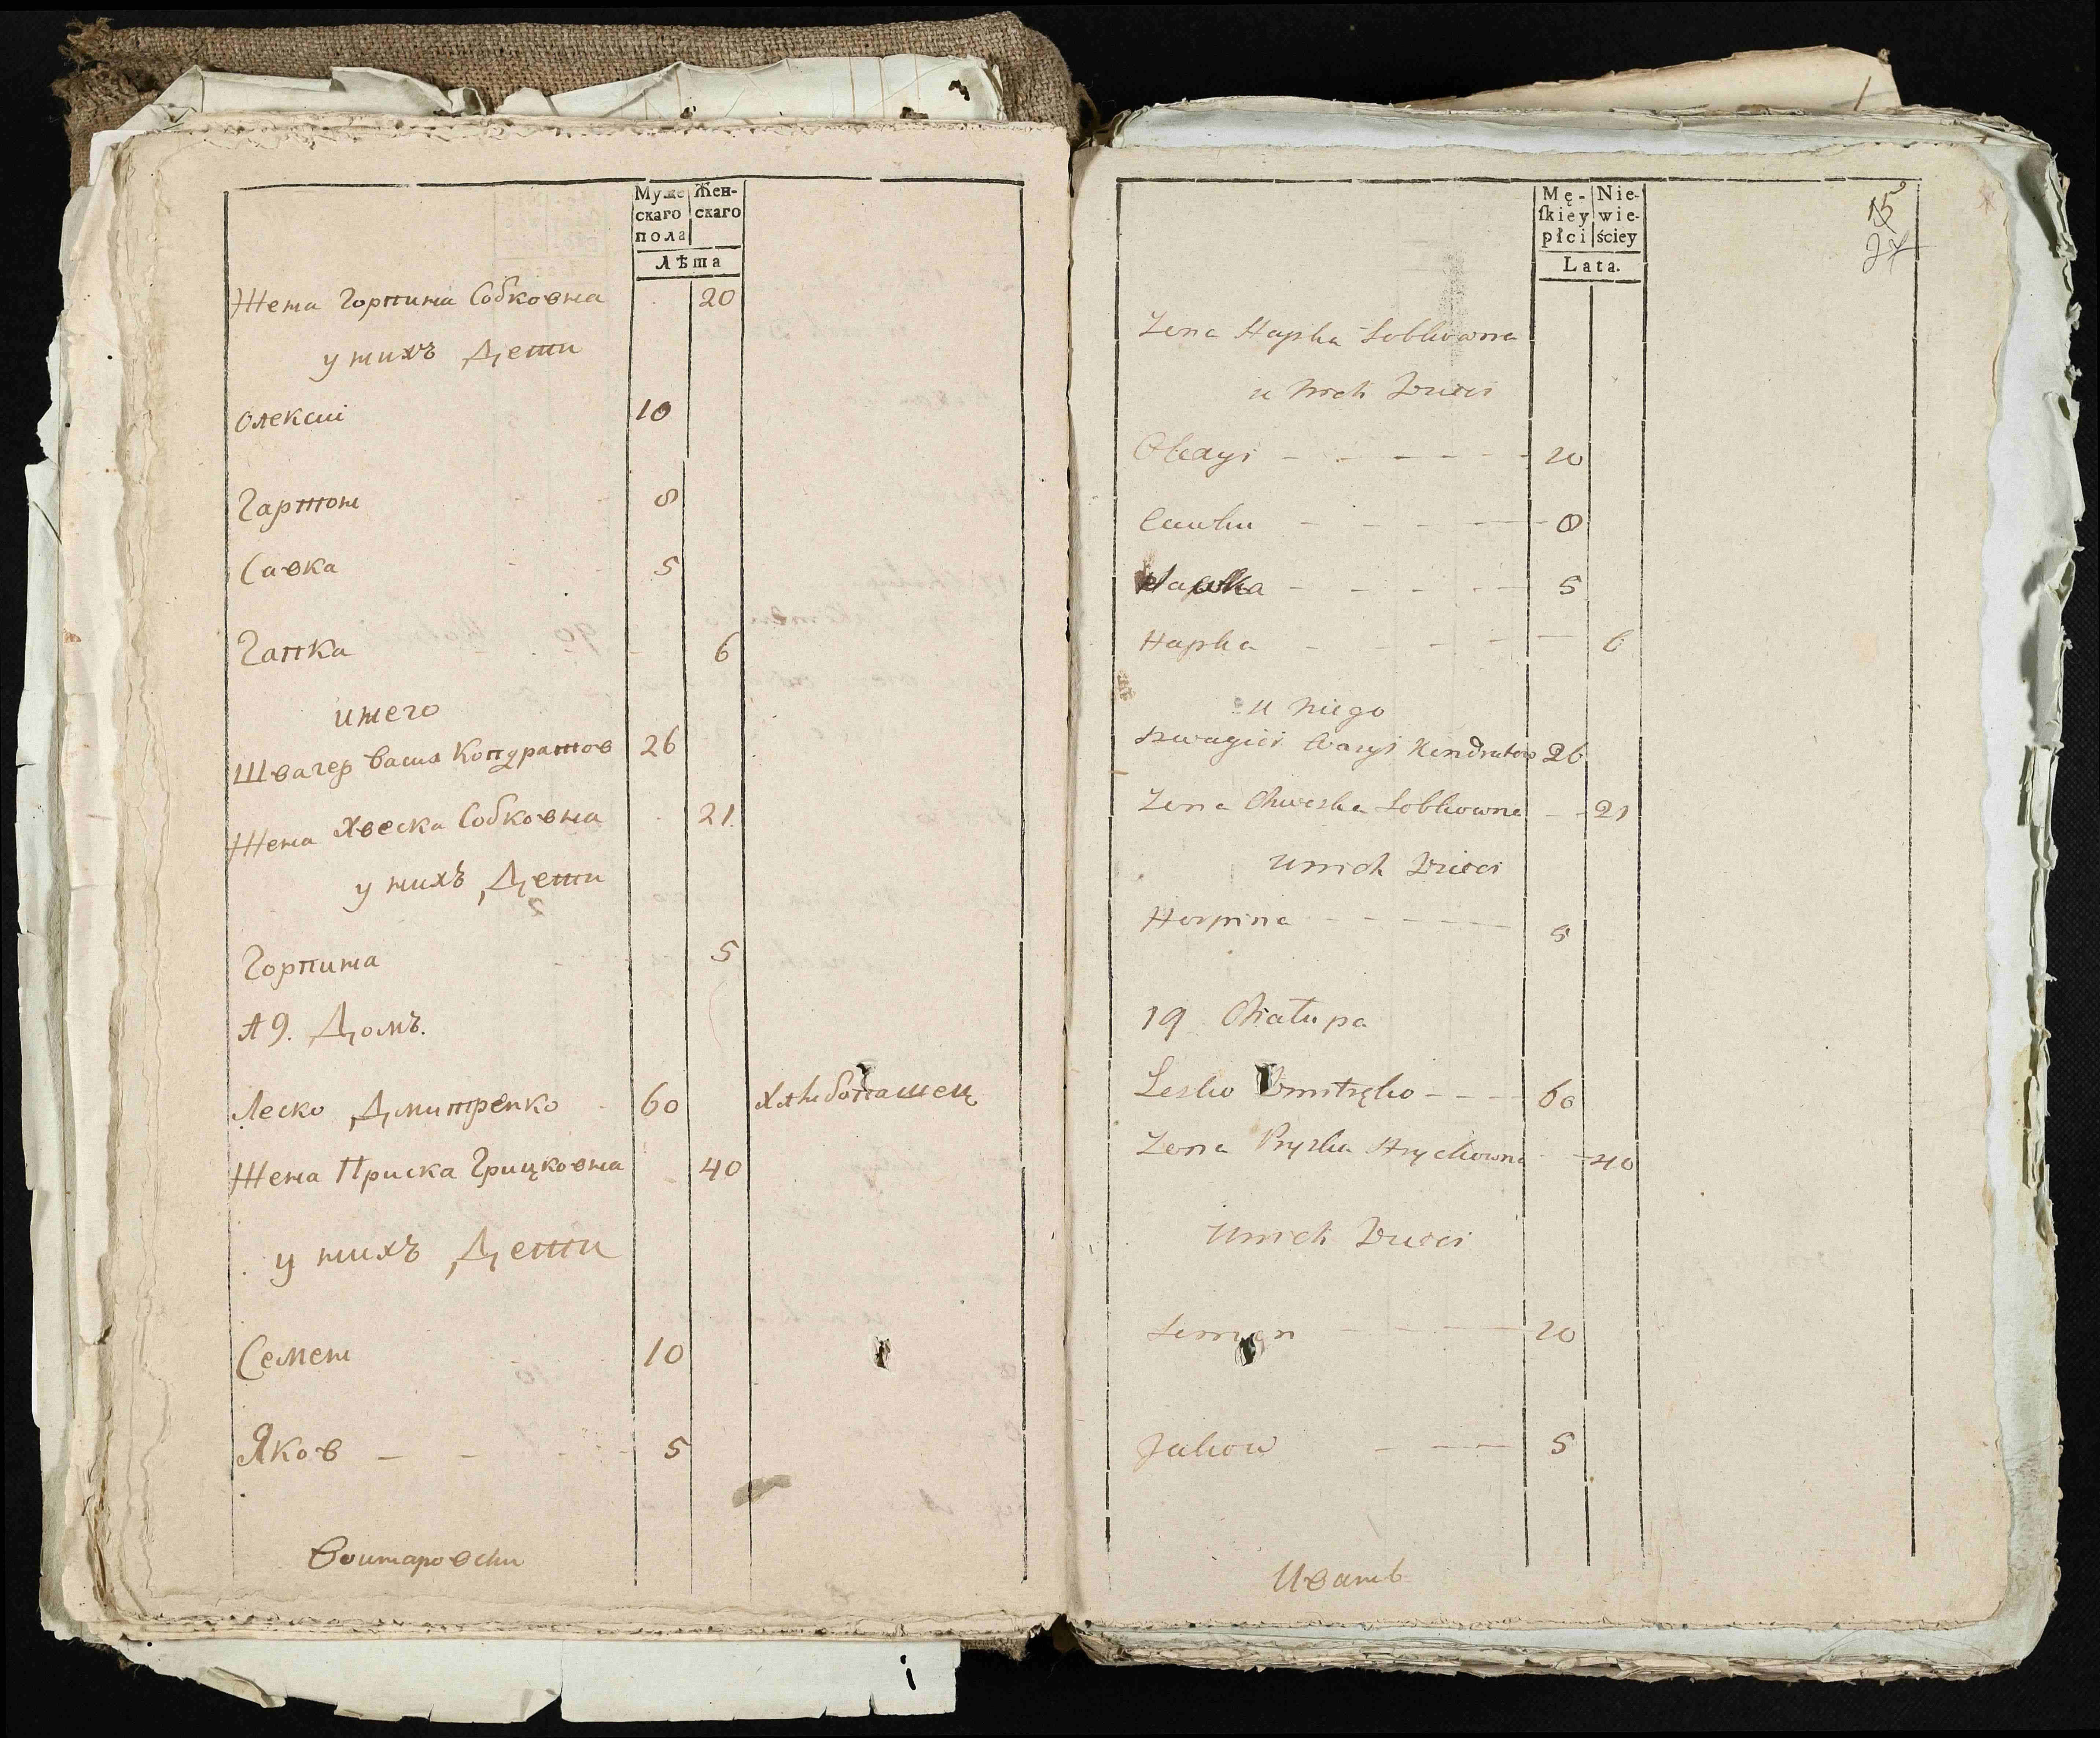 Муже Жен-
скаго скаго
пола
Лѣта
Жена Горпина Собковна 20
у нихъ Дети
Олексии 10
Гарион 8
Савка 5
Гапка 6
Швагер Васил Кондратов 26
Жена Хвеска Собковна 21
у нихъ Дети
Горпина 5
19. Домъ.
Леско Дмитренко 60
Жена Приска Грицковна 40
у нихъ Дети
Семен 10
Яков 5
Mę- Nie-
ſkiey wie-
płci ściey
Lata.
Zona Hapka Sobkowna
u nich Dzieci
Olexyi 10
8
5
Hapka 6
u niego
Szwagier Wasyl Kondratow 26
Zona Chweska Sobkowna 21
u nich Dzieci
Horpina 5
19 Chałupa
Lesko Dmitręko 60
Zona Pryska Hryckowna 40
u nich Dzieci
Semen 10
Jakow 5